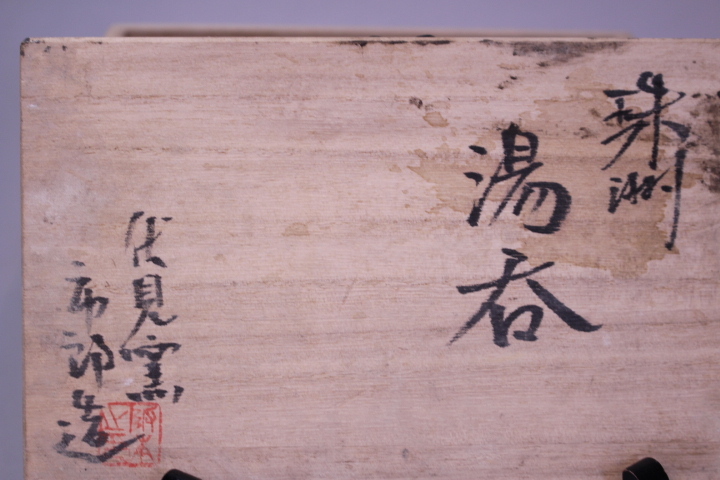 珠洲
湯呑
伏見窯
市郎造